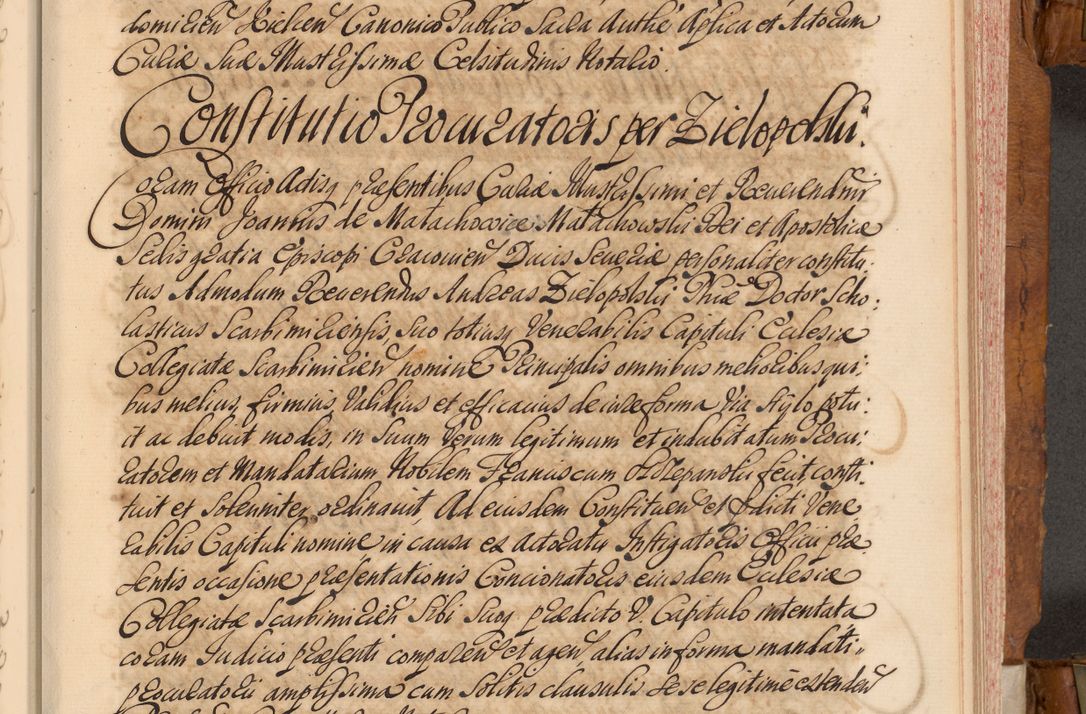 domicilien Kielcen Canonico Publico Sacra Authē Aplica et Actorum
Curiæ Suæ Illustrissimæ Celsitudinis Notario.
Constitutio Procuratoris per Zielopolski.
Coram Officio Actisq præsentibus Curiæ Illustrissimi et Reverendmi
Domini Joannis de Małachowice Małachowski Dei et Apostolicæ
Sedis gratia Episcopi Cracovien Ducis Severiæ personaliter constitu:
tus Admodum Reverendus Andreas Zielopolski Phiæ Doctor Scho:
lasticus Scarbimiriensis, suo totiusq Venerabilis Capituli Eclesiæ
Collegiatæ Scarbimirien nomine Principalis omnibus melioribus qui:
bus melius, firmius, validius et efficacius de iure forma via stylo potu:
it ac debuit modis, in suum verum legitimum et indubitatum Procu:
ratorem et Mandatarium Nobilem Franciscum Odrzepanski fecit, consti:
tuit et solemniter ordinavit, Ad eiusdem Constituen et pdicti Vene
rabilis Capituli nomine in causa ex actoratu Instigatoris Officii præ
sentis occasione præsentationis Concionatoris eiusdem Eclesiæ
Collegiatæ Scarbimirien sibi suoq prædicto V. Capitulo intentata
coram Judicio præsenti comparen et agen alias in forma mandati
procuratorii amplissima cum solitis clausulis de se legitime extenden